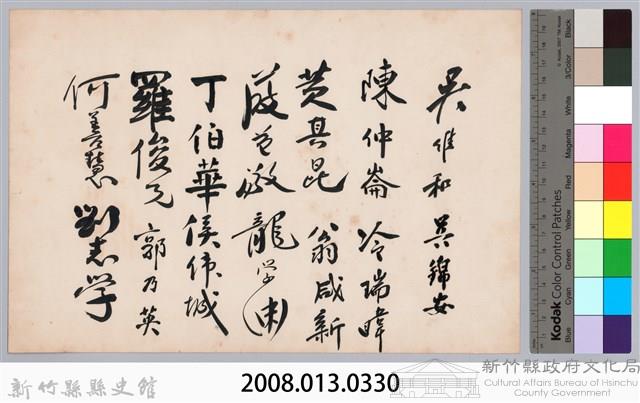 吳維和 吳錦安
陳仲崙 冷瑞暐
黃其昆 翁咸新
敬 龍学
丁伯華 侯伟城
羅俊 郭乃英
何善慧 劉志学
Black
3/Color
White
Magenta
Red
Yellow
Green
Cyan
Blue
Kodak Color Control Patches
新竹縣縣史館
2008.013.0330
新竹縣政府文化局
Cultural Affairs Bureau of Hsinchu
County Government